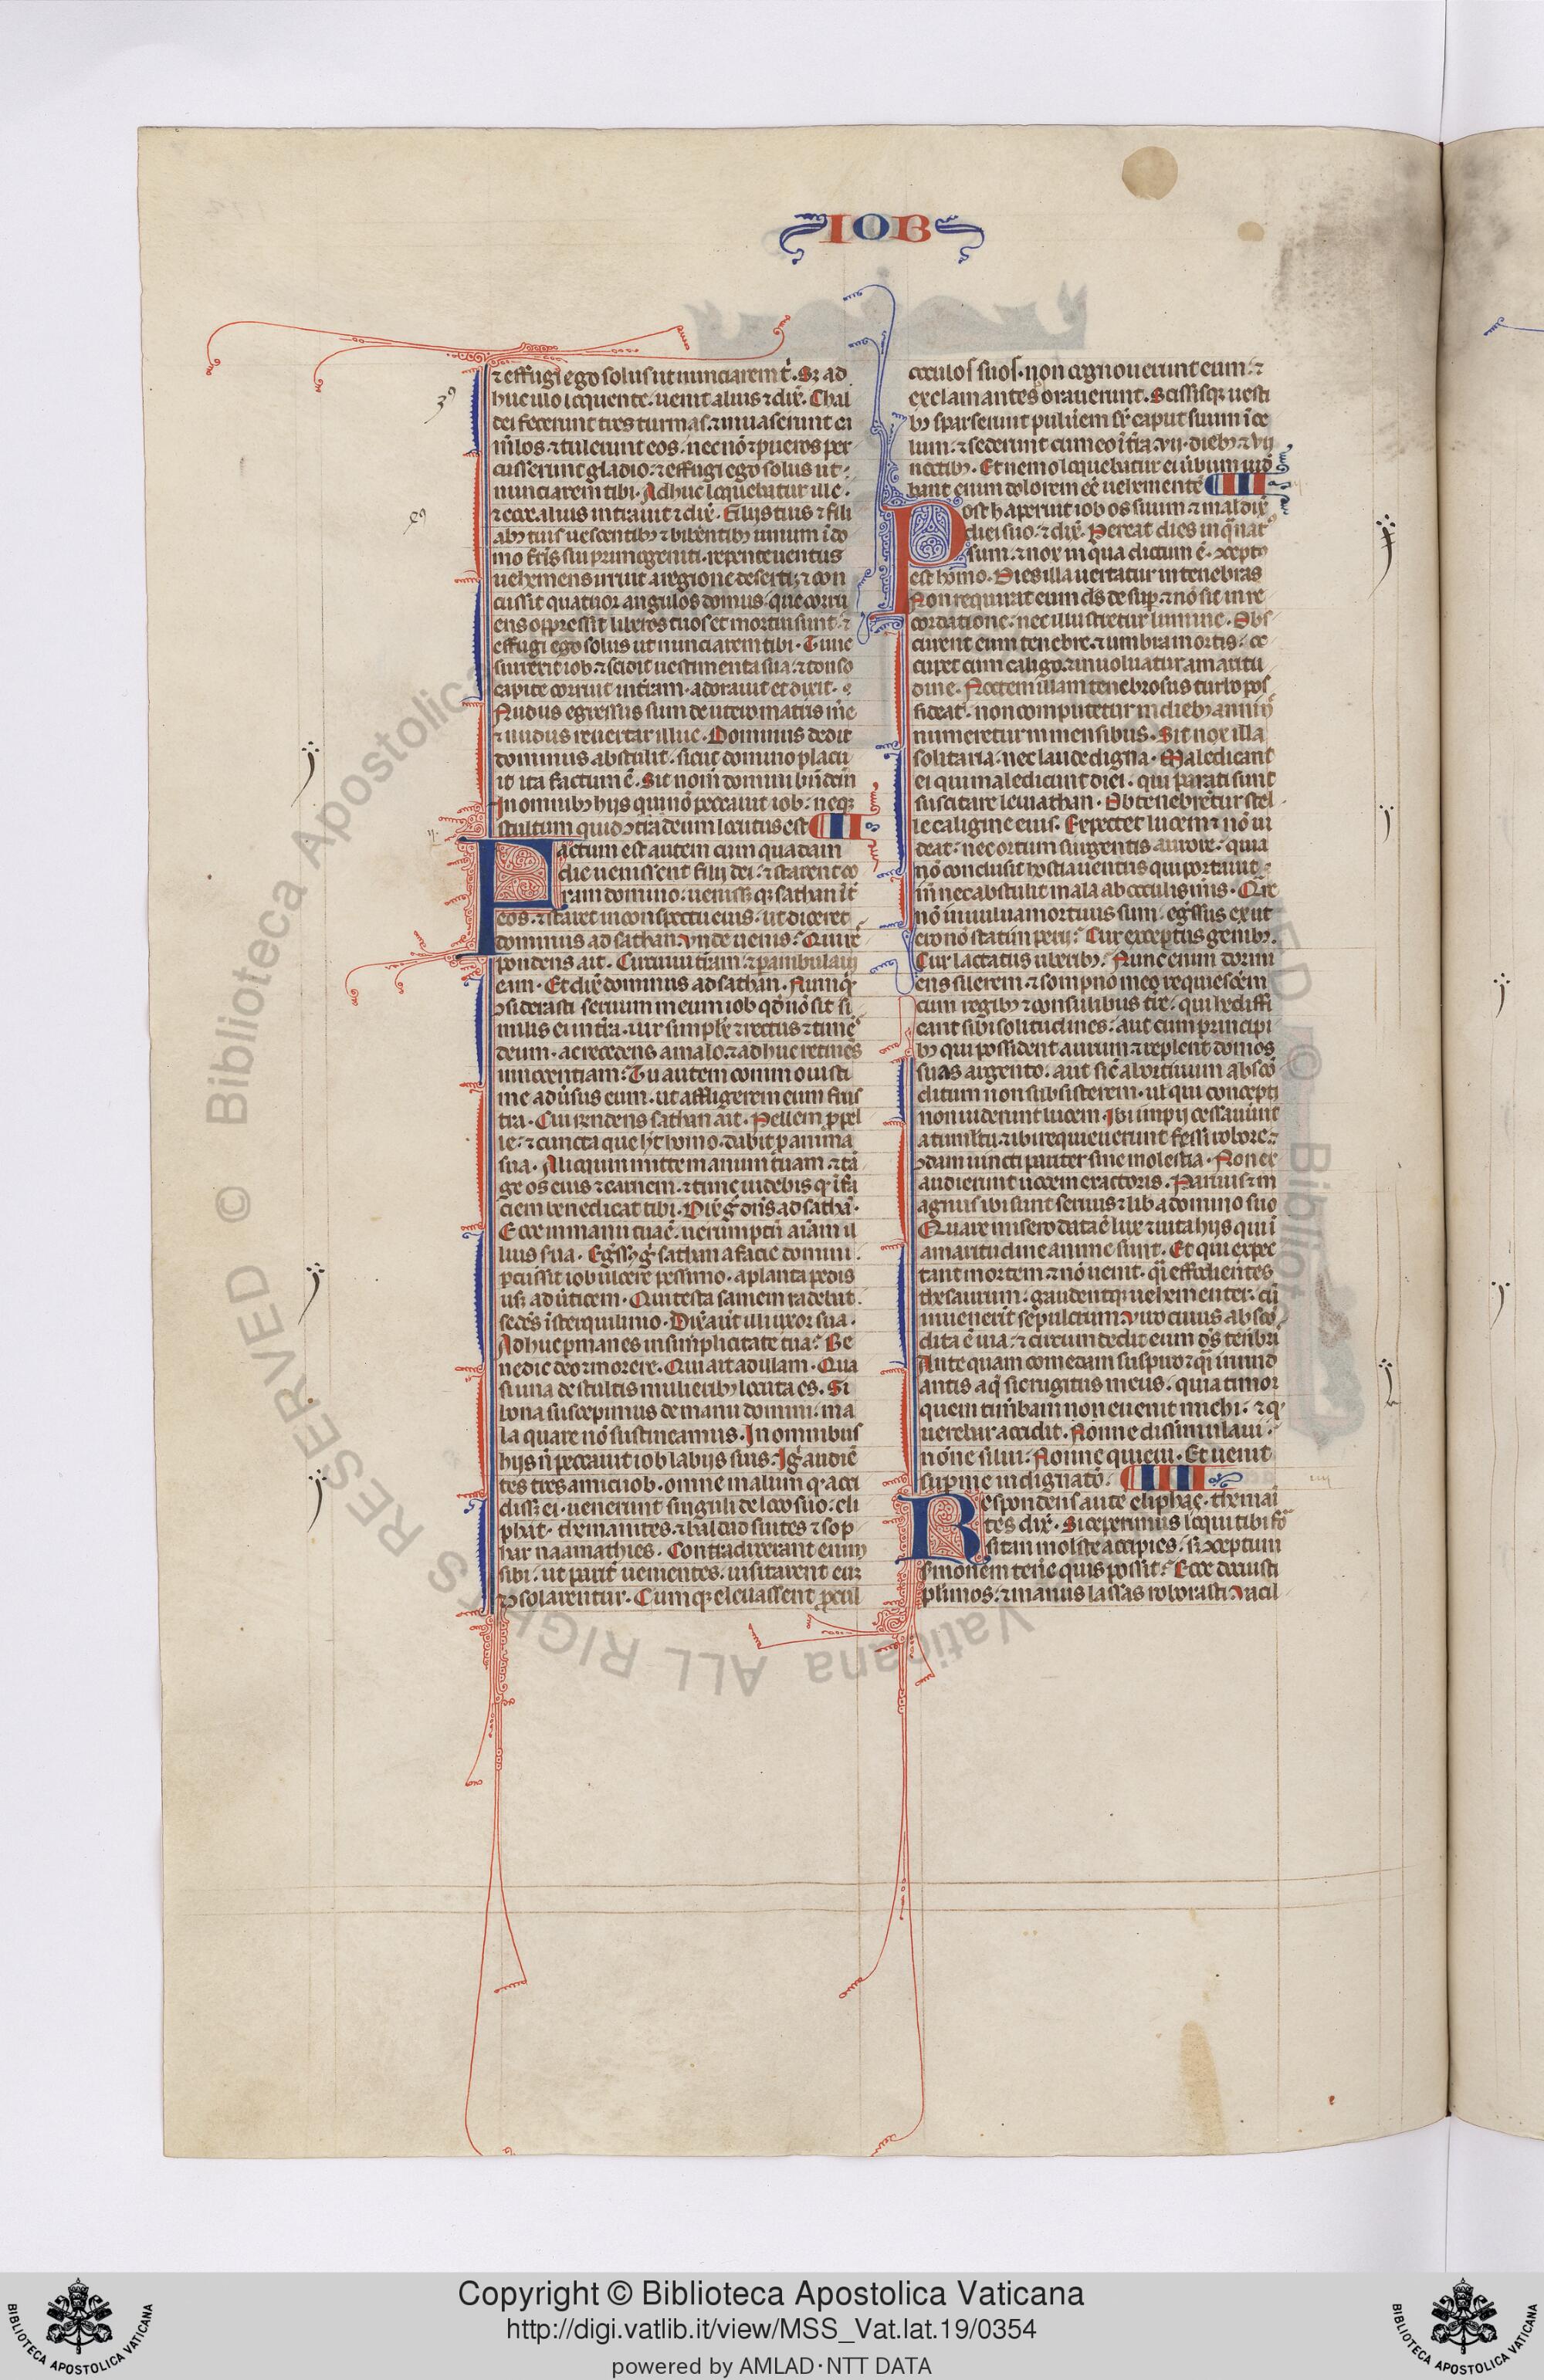 IOB
⁊ effugi ego solus ut nunciarem t̄. Sꝫ ad
huc illo loquente. uenit alius ⁊ dix̄. Chal
dei fecerunt tres turmas. ⁊ inuaserunt ca
m̄los. ⁊ tulerunt eos. nec nō ⁊ pueros per
cusserunt gladio. ⁊ effugi ego solus ut
nunciarem tibi. Adhuc loquebatur ille.
⁊ ecce alius intrauit ⁊ dix̄. Filiis tuis ⁊ fili
abꝫ tuis uescentibꝫ ⁊ bibentibꝫ uinum ī do
mo fr̄is sui primogeniti. repente uentus
uehemens irruit a regione deserti. ⁊ con
cussit quatuor angulos domus. que corru
ens oppressit liberos tuos et mortui sunt. ⁊
effugi ego solus ut nunciarem tibi. Tunc
surrexit iob ⁊ scidit uestimenta sua. ⁊ tonso
capite corruit in tr̄am. adorauit et dixit.
Nudus egressus sum de utero matris mē
⁊ nudus reuertar illuc. Dominus dedit
dominus abstulit. sicut domino placu
it ita factum ē. Sit nom̄ domini bn̄dcm̄
In omnibꝫ hijs qui nō peccauit iob. neqꝫ
stultum quid ꝯtra deum locutus est
II
Factum est autem cum quadam
die uenissent filij dei. ⁊ starent co
ram domino. uenissꝫ qꝫ sathan īt̄
eos. ⁊ staret in conspectu eius. ut diceret
dominus ad sathan. Vnde uenis? Qui rē
pondens ait. Circuiui tr̄am. ⁊ pambulaui
eam. Et dix̄ dominus ad sathan. Numqͥd
ꝯsiderasti seruum meum iob qd̄ nō sit si
milis ei in tr̄a. uir simplex ⁊ rectus ⁊ timē
deum. ac recedens a malo. ⁊ adhuc retinēs
innocentiam. Tu autem commouisti
me aduersus eum. ut affligerem eum frus
tra. Cui r̄ndens sathan ait. Pellem p pel
le. ⁊ cuncta que ht̄ homo. dabit p anima
sua. Alioquin mitte manum tuam. ⁊ tā
ge os eius ⁊ carnem. ⁊ tunc uidebis q̄ ī fa
ciem benedicat tibi. Dix̄ g̊ dn̄s ad sathā.
Ecce in manu tua ē. uerumptn̄ aīam il
lius sua. Egr̄ssꝰ g̊ sathan a facie domini.
pcussit iob ulcere pessimo. a planta pedis
usꝫ ad ūticem. Qui testa saniem radebat.
sedēs ī sterquilinio. Dix̄ aūt illi uxor sua.
Adhuc pmanes in simplicitate tua? Be
nedic deo ⁊ morere. Qui ait ad illam. Qua
si una de stultis mulieribꝫ locuta es. Si
bona suscepimus de manu domini. ma
la quare nō sustineamus. In omnibus
hijs n̄ peccauit iob labijs suis. Ig̊ audiē
tes tres amici iob. omne malum q̄ acci
dissꝫ ei. uenerunt singuli de loco suo. eli
phat. themanites. ⁊ baldad suites ⁊ sop
har naamathites. Condixerant enim
sibi. ut parit̄ uenientes. uisitarent eū
⁊ ꝯsolarentur. Cumqꝫ eleuassent procul
occulos suos. non cognouerunt eum. ⁊
exclamantes orauerunt. Scissisqꝫ uesti
bꝫ sparserunt puluerem sr̄ caput suum ī ce
lum. ⁊ sederunt cum eo ī tr̄a. vii. diebꝫ ⁊ vij
noctibꝫ. Et nemo loquebatur ei ūbum uid̄
bant enim dolorem eē uehementē
III
Post h̄ aperuit iob os suum ⁊ maldix̄
diei suo. ⁊ dix̄. Pereat dies in qͣ nat̄
sum. ⁊ nox in qua dictum ē. ꝯceptꝰ
est homo. Dies illa uertatur in tenebras
Non requirat eum ds̄ desup. ⁊ nō sit in re
cordatione. nec illustretur lumine. Obs
curent eum tenebre. ⁊ umbra mortis. oc
cupet eum caligo. ⁊ inuoluatur amaritu
dine. Noctem illam tenebrosus turbo pos
sideat. non computetur in diebꝫ anni n̄
numeretur in mensibus. Sit nox illa
solitaria. nec laude digna. Maledicant
ei qui maledicunt diei. qui parati sunt
suscitare leuiathan. Obtenebretur stel
le caligine eius. Expectet lucem ⁊ nō ui
deat. nec ortum surgentis aurore. quia
nō conclusit hostia uentris qui portauit
m̄ nec abstulit mala ab occulis meis. Qͣre
nō in uulua mortuus sum. egr̄ssus ex ut
ero nō statim perij? Cur exceptus genibꝫ.
Cur lactatus uberibꝫ. Nunc enim dormi
ens silerem. ⁊ sompno meo requiescem̄
cum regibꝫ ⁊ consulibus tr̄e. qui hediffi
cant sibi solitudines. aut cum principi
bꝫ qui possident aurum. ⁊ replent domos
suas argento. aut sic̄ abortiuum abscō
ditum non subsisterem. ul̄ qui concepti
non uiderunt lucem. Ibi impij cessauerunt
a tumultu. ⁊ ibi requieuerunt fessi robore. ⁊
ꝯdam uincti pariter sine molestia. Non ex
audierunt uocem exactoris. Paruus ⁊ m
agnus ibi sunt. seruus ⁊ lib a domino suo
Quare misero data ē lux. ⁊ uita hijs qui ī
amaritudine anime sunt. Et qui expec
tant mortem. ⁊ nō uenit. qͣi effodientes
thesaurum. gaudentqꝫ uehementer. cū
inuenerit sepulcrum. Viro cuius abscō
dita ē uia. ⁊ circumdedit eum ds̄ tenebri
Ante quam comedam suspiro. ⁊ qͣi inund
antis aq̄ sic rugitus meus. quia timor
quem timebam non euenit michi. ⁊ q̄
uerebar accidit. Nonne dissimulaui.
nōne silui. Nonne quieui. Et uenit
sup me indignatō.
IIII
Respondens aut̄ eliphac. themai
tes dix̄. Si ceperimus loqui tibi fo
sitan moleste accipies. sꝫ ꝯceptum
s̄monem tene̅ quis possit? Ecce docuisti
plimos. ⁊ manus lassas roborasti. Vacil
Copyright © Biblioteca Apostolica Vaticana
http://digi.vatlib.it/view/MSS_Vat.lat.19/0354
powered by AMLAD·NTT DATA
BIBLIOTECA APOSTOLICA VATICANA
BIBLIOTECA APOSTOLICA VATICANA
© Biblioteca Apostolica Vaticana ALL RIGHTS RESERVED